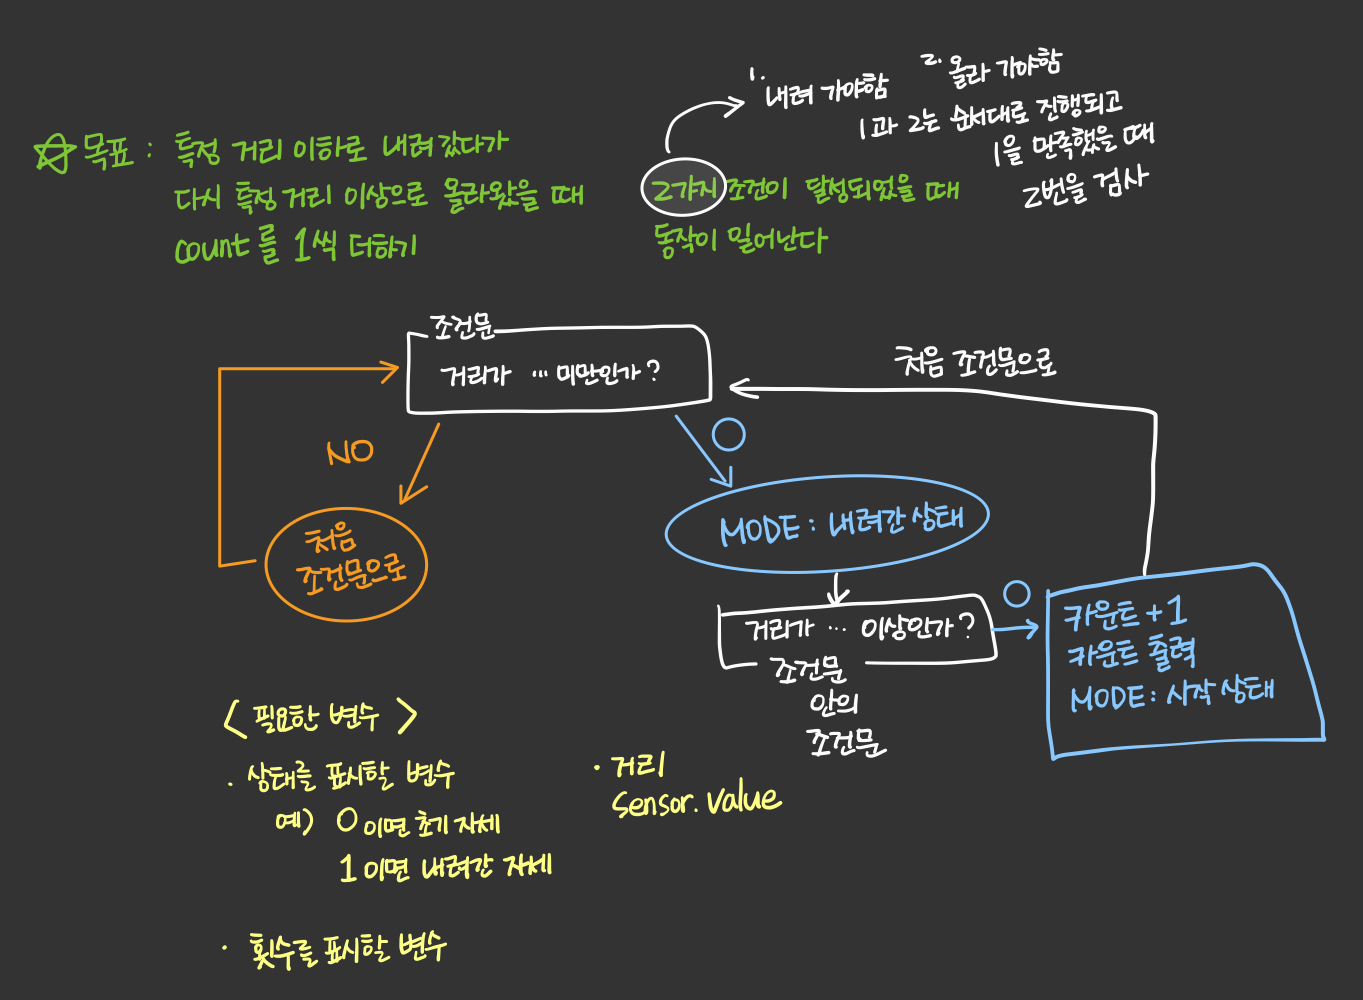 ☆목표 : 특정 거리 이하로 내려갔다가
다시 특정 거리 이상으로 올라왔을 때
count를 1씩 더하기
2가지 조건이 달성되었을 때
동작이 일어난다
1. 내려 가야함
2. 올라 가야함
1과 2는 순서대로 진행되고
1을 만족했을 때
2번을 검사
조건문
거리가 ... 미만인가?
NO
처음
조건문으로
○
MODE : 내려간 상태
거리가 ... 이상인가?
조건문
안의
조건문
○
카운트 +1
카운트 출력
MODE : 시작 상태
처음 조건문으로
< 필요한 변수 >
· 상태를 표시할 변수
예) 0이면 초기 자세
1이면 내려간 자세
· 횟수를 표시할 변수
· 거리
Sensor.value